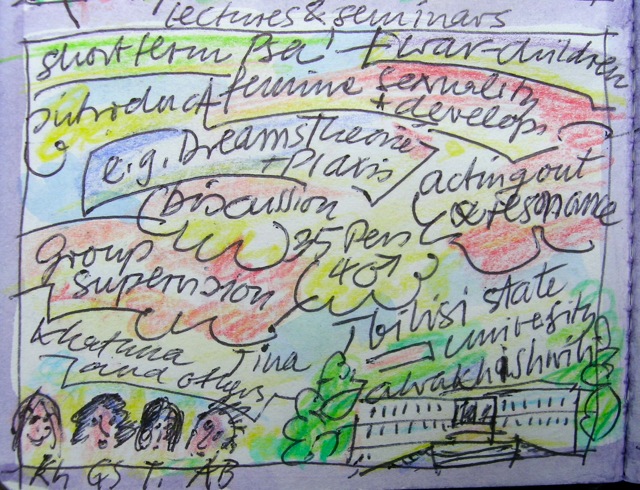 lectures & seminars
short term Psa! + war-children
introduct feminine sexuality
+ develop.
e.g. Dreams Theorie
+ Praxis
acting out
& resonance
Discussion
25 Pers
4♂
group
supervision
Tbilisi state
University
Javakhishvili
Khatuna Tina
and others
Kh GS T. AB